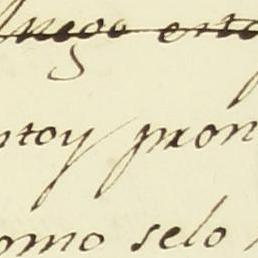 luego esto
ntoy pron
omo selo